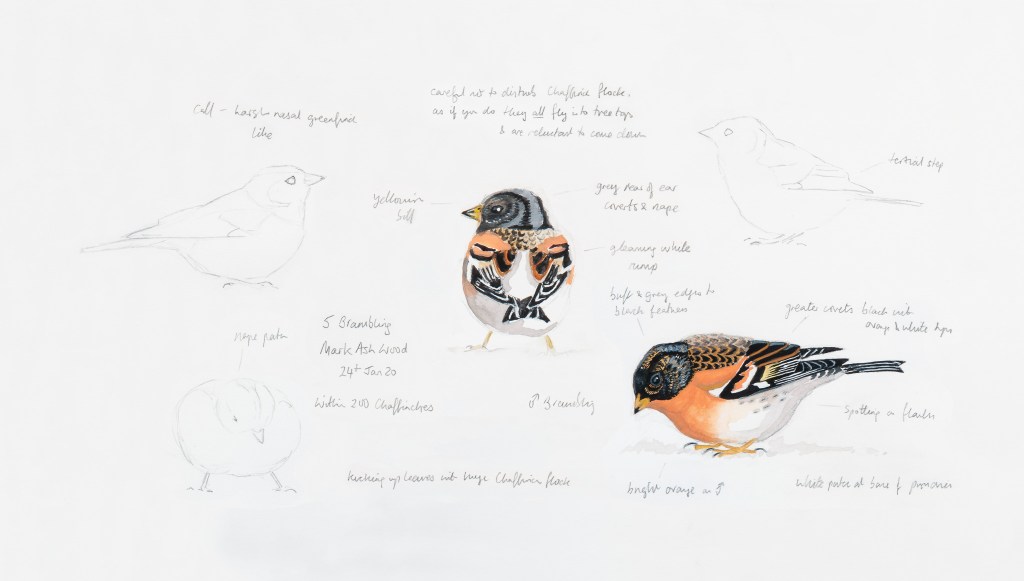 call - harsh nasal greenfinch
like
careful not to disturb Chaffinch flock,
as if you do they all fly into tree tops
& are reluctant to come down
tertial step
yellowish
buff
grey rear of ear
coverts & nape
gleaming white
rump
buff & grey edges to
black feathers
greater coverts black with
orange & white tips
nape patch
5 Brambling
Mark Ash Wood
24th Jan 20
Within 200 Chaffinches
♂ Brambling
spotting on flanks
kicking up leaves with huge Chaffinch flock
bright orange on ♂
white patch at base of primaries